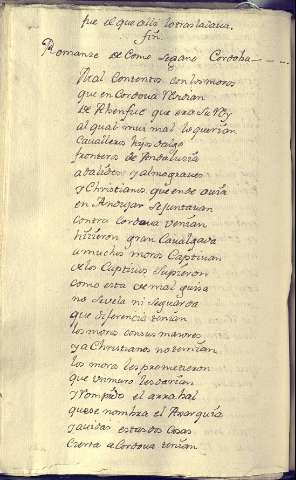 fue el que alli lo trasladava.
fin.
Romanze de Como se gano Cordoba
Mal contentos con los moros
que en Cordova Vivian
De Abenfuc que era su Rey
al qual muy mal lo querian
Cavalleros hijos dalgo
fronteros de Andaluzia
adalides y almograves
y Christianos que ende avia
en Andujar se juntavan
contra Cordova venian
hizieron gran Cavalgada
a muchos moros Captivan
de los Captivos supieron
como esta de mal guisa
no se vela ni se guarda
que diferencia tenian
los moros con sus mayores
y a Christianos no temian
los moros les prometieron
que un muro les darian
y Rompido el arrabal
que se nombra el Axarquia
y avidas estas dos cosas
cierta a Cordova tenian